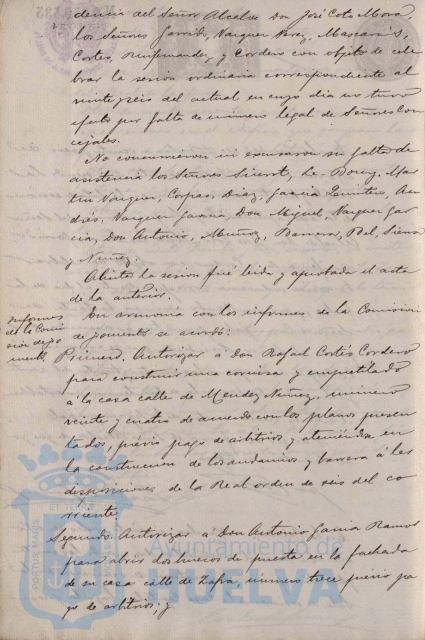 dencia del Señor Alcalde Don José Coto Mora,
los Señores Garrido, Vazquez Perez, Mascarós,
Cortes, y Cordero con objeto de cele
brar la sesion ordinaria correspondiente al
veinte seis del actual en cuyo dia no tuvo
efecto por falta de número legal de Señores Con
cejales.
No concurrieron ni excusaron su falta de
asistencia los Señores Le-Bourg, Mar
tin Vazquez, Corpas, Diaz, Garcia Quintero, An
drés, Vazquez Garcia, Don Miguel, Vazquez Gar
cia, Don Antonio, Muñoz, Barrera, Bel, Sierra
y Nuñez.
Abierta la sesion fué leida y aprobada el acta
de la anterior.
Informes
de la Comi
sion de fo
mento.
En armonia con los informes de la Comision
de fomento se acordó:
Primero. Autorizar á Don Rafael Cortés Cordero
para construir una cornisa y empretilado
á la casa calle de Mendez Nuñez, número
veinte y cuatro de acuerdo con los planos presen
tados, previo pago de arbitrios y ateniéndose en
la construccion de los andamios y barrera á las
disposiciones de la Real orden de seis del co
rriente.
Segundo. Autorizar á Don Antonio Garcia Ramos
para abrir dos huecos de puerta en la fachada
de su casa calle de Zafra, número trece previo pa
go de arbitrios; y
PORTUS MARIS
Ayuntamiento de
HUELVA